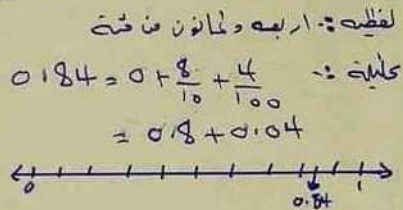 لفظيه :- اربعه وثمانون من مئة
تحليلية :- 0.84 = 0 + 8/10 + 4/100
= 0.8 + 0.04
0 0.84 1